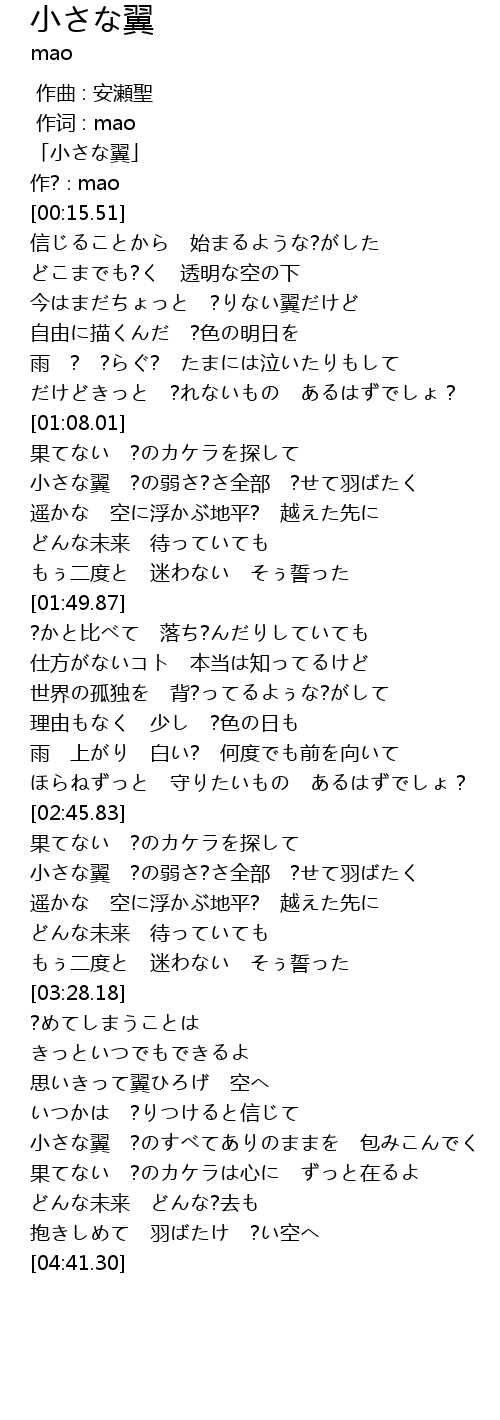 小さな翼
mao
作曲 : 安瀬聖
作词 : mao
「小さな翼」
作? : mao
[00:15.51]
信じることから　始まるような?がした
どこまでも?く　透明な空の下
今はまだちょっと　?りない翼だけど
自由に描くんだ　?色の明日を
雨　?　?らぐ?　たまには泣いたりもして
だけどきっと　?れないもの　あるはずでしょ？
[01:08.01]
果てない　?のカケラを探して
小さな翼　?の弱さ?さ全部　?せて羽ばたく
遥かな　空に浮かぶ地平?　越えた先に
どんな未来　待っていても
もぅ二度と　迷わない　そぅ誓った
[01:49.87]
?かと比べて　落ち?んだりしていても
仕方がないコト　本当は知ってるけど
世界の孤独を　背?ってるよぅな?がして
理由もなく　少し　?色の日も
雨　上がり　白い?　何度でも前を向いて
ほらねずっと　守りたいもの　あるはずでしょ？
[02:45.83]
果てない　?のカケラを探して
小さな翼　?の弱さ?さ全部　?せて羽ばたく
遥かな　空に浮かぶ地平?　越えた先に
どんな未来　待っていても
もぅ二度と　迷わない　そぅ誓った
[03:28.18]
?めてしまうことは
きっといつでもできるよ
思いきって翼ひろげ　空へ
いつかは　?りつけると信じて
小さな翼　?のすべてありのままを　包みこんでく
果てない　?のカケラは心に　ずっと在るよ
どんな未来　どんな?去も
抱きしめて　羽ばたけ　?い空へ
[04:41.30]